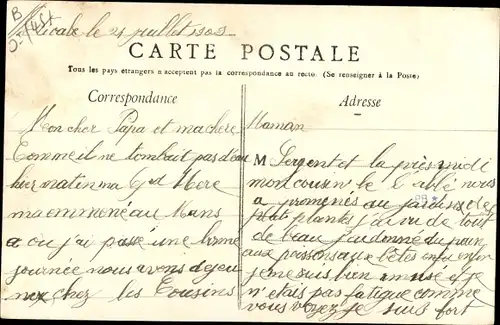 le 24 juillet 1903
CARTE POSTALE
Tous les pays étrangers n'acceptent pas la correspondance au recto. (Se renseigner à la Poste)
Correspondance
Adresse
Mon cher Papa et ma chère Maman
Comme il ne tombait pas d'eau
hier matin ma Gd Mère
ma emmoné au Mans
a ou j'ai passé une bonne
journée nous avons dejeu
ner chez les Cousins
M Sergent et la près midi
mon cousin le l'abbé nous
a promenés au jardin des
plantes j'ai vu de tout
de beau j'ai donné du pain
aux poissons aux bêtes enfin enfin
je me suis bien amusé et je
n'etais pas fatigué comme
vous voyez je suis fort